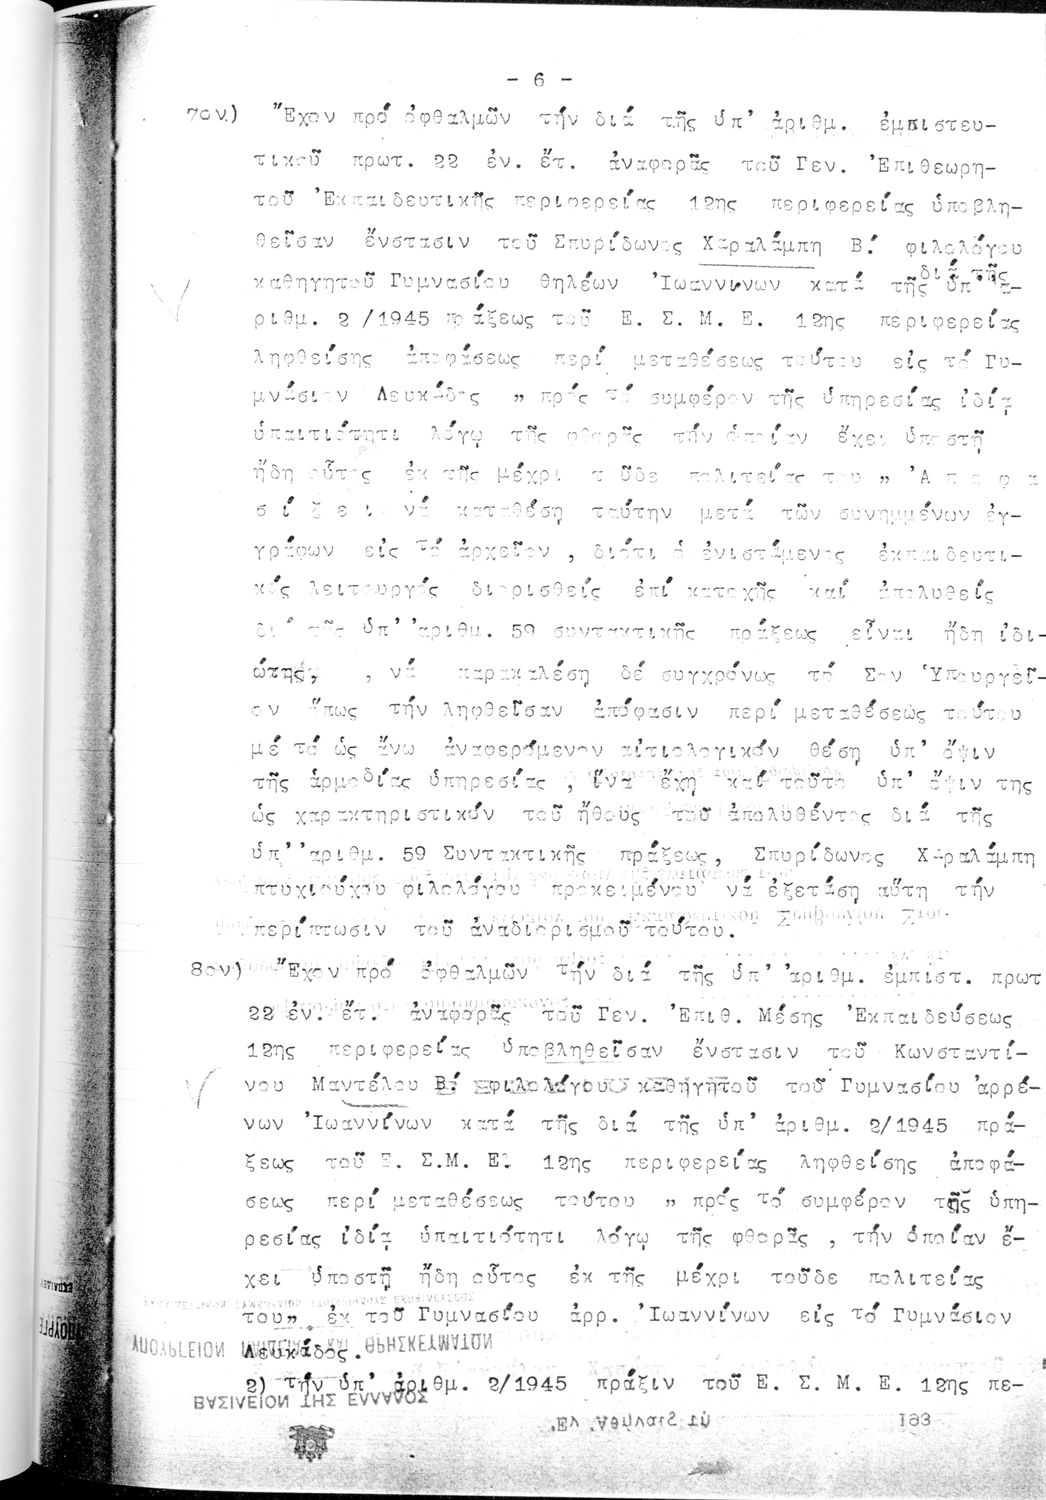 - 6 -
7ον) Ἔχον πρό ὀφθαλμῶν τήν διά τῆς ὑπ' ἀριθμ. ἐμπιστευ-
τικοῦ πρωτ. 22 ἐν. ἔτ. ἀναφορᾶς τοῦ Γεν. Ἐπιθεωρη-
τοῦ Ἐκπαιδευτικῆς περιφερείας 12ης περιφερείας ὑποβλη-
θεῖσαν ἔνστασιν τοῦ Σπυρίδωνος Χαραλάμπη Β.' φιλολόγου
καθηγητοῦ Γυμνασίου θηλέων Ἰωαννίνων κατά τῆς διά τῆς ὑπ' ἀ-
ριθμ. 2/1945 πράξεως τοῦ Ε. Σ. Μ. Ε. 12ης περιφερείας
ληφθείσης ἀποφάσεως περί μεταθέσεως τούτου εἰς τό Γυ-
μνάσιον Λευκάδος „ πρός τό συμφέρον τῆς ὑπηρεσίας ἰδίᾳ
ὑπαιτιότητι λόγῳ τῆς φθορᾶς τήν ὁποίαν ἔχει ὑποστῆ
ἤδη οὗτος ἐκ τῆς μέχρι τοῦδε πολιτείας του „ Ἀ π ο φ α
σ ί ζ ε ι νά καταθέση ταύτην μετά τῶν συνημμένων ἐγ-
γράφων εἰς τό ἀρχεῖον , διότι ὁ ἐνιστάμενος ἐκπαιδευτι-
κός λειτουργός διορισθείς ἐπί κατοχῆς καί ἀπολυθείς
διά τῆς ὑπ' ἀριθμ. 59 συντακτικῆς πράξεως εἶναι ἤδη ἰδι-
ώτης, , νά παρακαλέση δέ συγχρόνως τό Σον Ὑπουργεῖ-
ον ὅπως τήν ληφθεῖσαν ἀπόφασιν περί μεταθέσεώς τούτου
μέ τό ὡς ἄνω ἀναφερόμενον αἰτιολογικόν θέση ὑπ' ὄψιν
τῆς ἁρμοδίας ὑπηρεσίας , ἵνα ἔχη καί τοῦτο ὑπ' ὄψιν της
ὡς χαρακτηριστικόν τοῦ ἤθους τοῦ ἀπολυθέντος διά τῆς
ὑπ' ἀριθμ. 59 Συντακτικῆς πράξεως, Σπυρίδωνος Χαραλάμπη
πτυχιούχου φιλολόγου προκειμένου νά ἐξετάση αὕτη τήν
περίπτωσιν τοῦ ἀναδιορισμοῦ τούτου.
8ον) Ἔχον πρό ὀφθαλμῶν τήν διά τῆς ὑπ' ἀριθμ. ἐμπιστ. πρωτ
22 ἐν. ἔτ. ἀναφορᾶς τοῦ Γεν. Ἐπιθ. Μέσης Ἐκπαιδεύσεως
12ης περιφερείας ὑποβληθεῖσαν ἔνστασιν τοῦ Κωνσταντί-
νου Μαντέλου Β' φιλολόγου καθηγητοῦ τοῦ Γυμνασίου ἀρρέ-
νων Ἰωαννίνων κατά τῆς διά τῆς ὑπ' ἀριθμ. 2/1945 πρά-
ξεως τοῦ Ε. Σ.Μ. Ε. 12ης περιφερείας ληφθείσης ἀποφά-
σεως περί μεταθέσεως τούτου „ πρός τό συμφέρον τῆς ὑπη-
ρεσίας ἰδίᾳ ὑπαιτιότητι λόγῳ τῆς φθορᾶς , τήν ὁποίαν ἔ-
χει ὑποστῆ ἤδη οὗτος ἐκ τῆς μέχρι τοῦδε πολιτείας
του„ ἐκ τοῦ Γυμνασίου ἀρρ. Ἰωαννίνων εἰς τό Γυμνάσιον
Λευκάδος.
2) τήν ὑπ' ἀριθμ. 2/1945 πρᾶξιν τοῦ Ε. Σ. Μ. Ε. 12ης πε-
ΒΑΣΙΛΕΙΟΝ ΤΗΣ ΕΛΛΑΔΟΣ